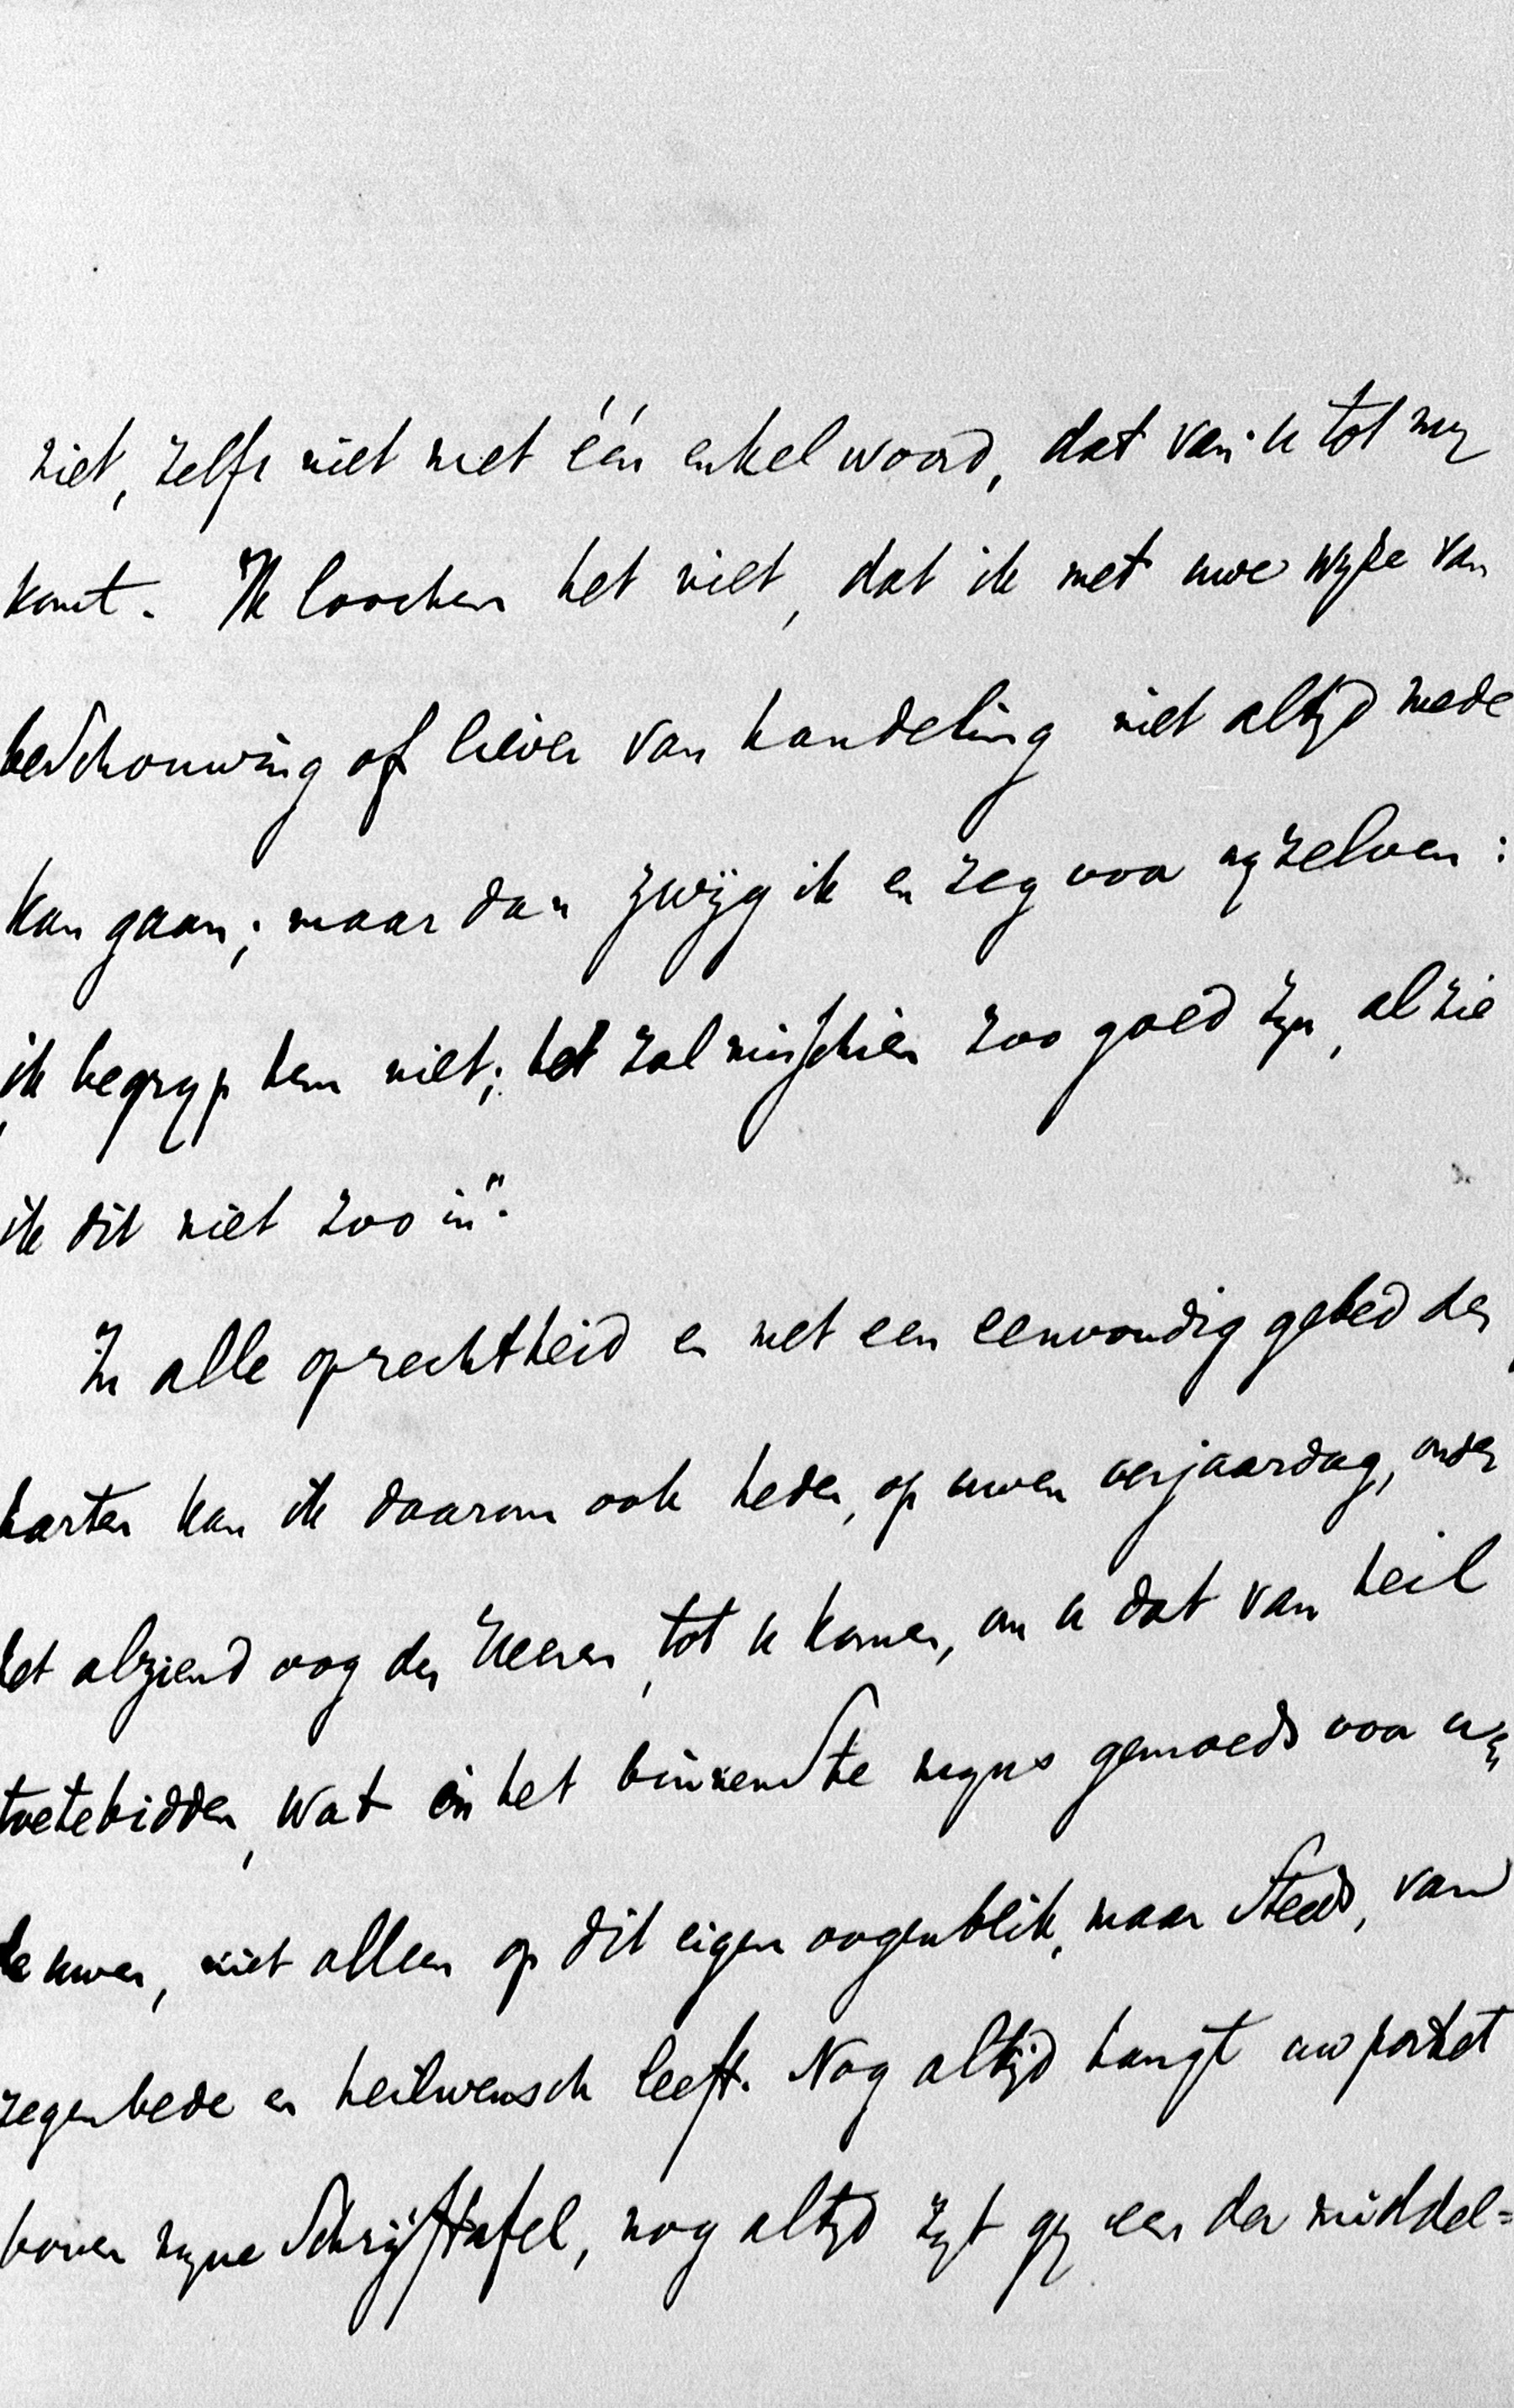 niet, zelfs niet met één enkel woord, dat van u tot my
komt. Ik loochen het niet, dat ik met uwe wyze van
beschouwing of liever van handeling niet altyd mede
kan gaan; maar dan zwijg ik en zeg voor myzelven:
„ik begryp hem niet; het zal misschien zoo goed zyn, al zie
ik dit niet zoo in".
In alle oprechtheid en met een eenvoudig gebed des
harten kan ik daarom ook heden, op uwen verjaardag, onder
het alziend oog des Heeren, tot u komen, om u dat van heil
toetebidden, wat in het binnenste mynes gemoeds voor u en
de uwen, niet alleen op dit eigen oogenblik, maar steeds, van
zegenbede en heilwensch leeft. Nog altijd hangt uw portret
boven myne schrijftafel, nog altyd zyt gy een der middel=